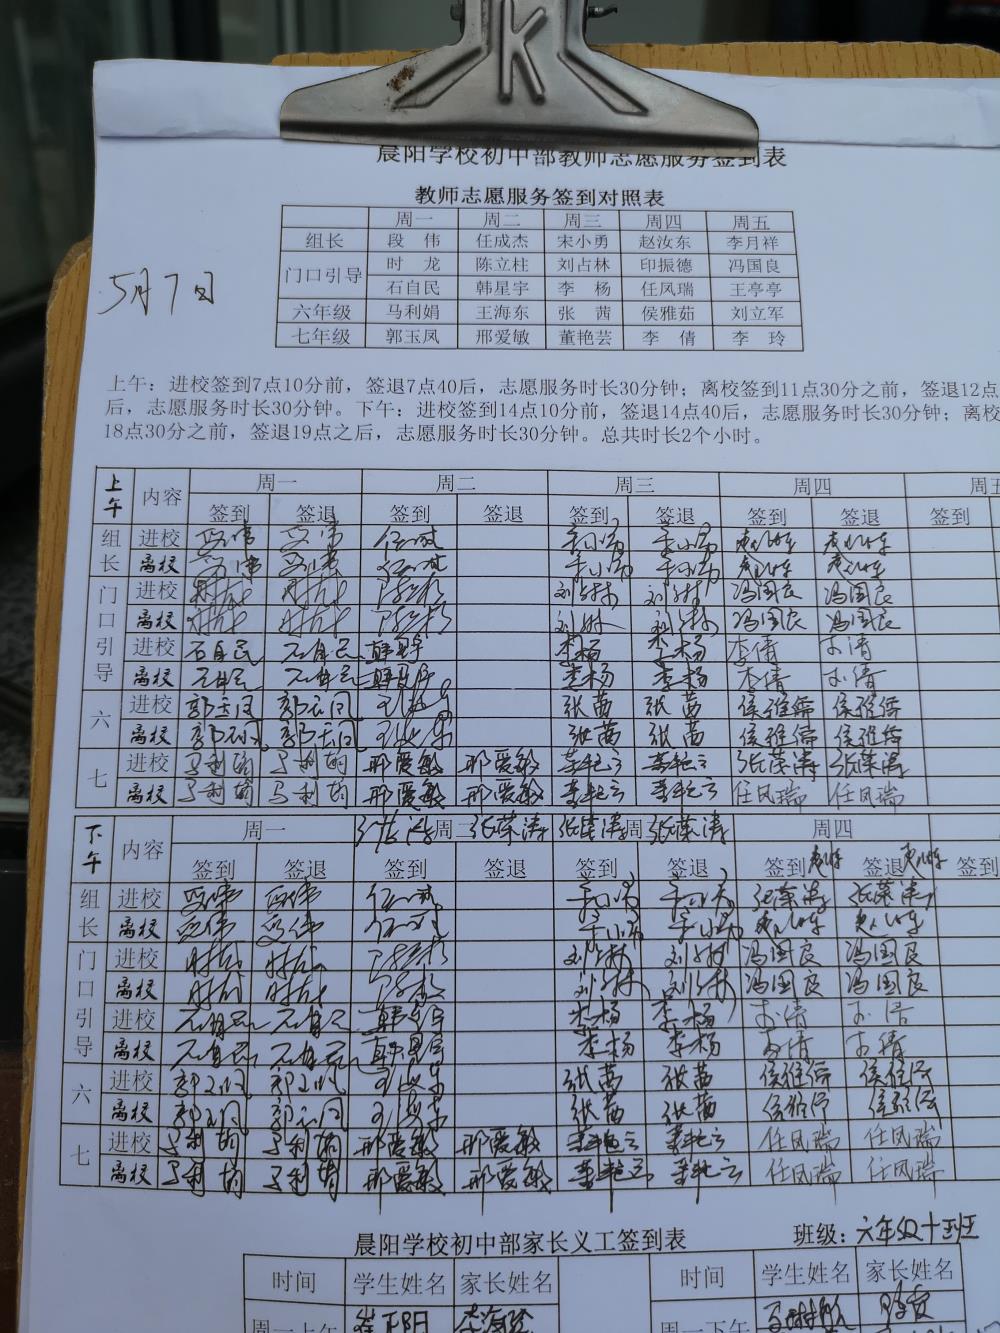 K
晨阳学校初中部教师志愿服务签到表
教师志愿服务签到对照表
周一 周二 周三 周四 周五
组长 段伟 任成杰 宋小勇 赵汝东 李月祥
门口引导 时龙 陈立柱 刘占林 印振德 冯国良
石自民 韩星宇 李杨 任凤瑞 王亭亭
六年级 马利娟 王海东 张茜 侯雅茹 刘立军
七年级 郭玉凤 邢爱敏 董艳芸 李倩 李玲
5月7日
上午：进校签到7点10分前，签退7点40后，志愿服务时长30分钟；离校签到11点30分之前，签退12点
后，志愿服务时长30分钟。下午：进校签到14点10分前，签退14点40后，志愿服务时长30分钟；离校
18点30分之前，签退19点之后，志愿服务时长30分钟。总共时长2个小时。
上午 内容 周一 周二 周三 周四 周五
签到 签退 签到 签退 签到 签退 签到 签退 签到
组长 进校 段伟 段伟
离校 段伟 段伟
门口引导 进校 时龙 时龙 刘占林 刘占林 冯国良 冯国良
离校 时龙 时龙 刘占林 刘占林 冯国良 冯国良
进校 石自民 石自民 韩星宇 李杨 李杨 李倩 李倩
离校 石自民 石自民 韩星宇 李杨 李杨 李倩 李倩
六 进校 郭玉凤 郭玉凤 张茜 张茜 侯雅茹 侯雅茹
离校 郭玉凤 郭玉凤 张茜 张茜 侯雅茹 侯雅茹
七 进校 马利娟 马利娟 邢爱敏 邢爱敏 董艳云 董艳云 张荣涛 张荣涛
离校 马利娟 马利娟 邢爱敏 邢爱敏 董艳云 董艳云 任凤瑞 任凤瑞
下午 内容 周一 张荣涛 周二 张荣涛 张荣涛 周三 张荣涛 周四
签到 签退 签到 签退 签到 签退 签到 签退 签到
组长 进校 段伟 段伟 张荣涛 张荣涛
离校 段伟 段伟
门口引导 进校 时龙 时龙 刘占林 刘占林 冯国良 冯国良
离校 时龙 时龙 刘占林 刘占林 冯国良 冯国良
进校 石自民 石自民 韩星宇 李杨 李杨 李倩 李倩
离校 石自民 石自民 韩星宇 李杨 李杨 李倩 李倩
六 进校 郭玉凤 郭玉凤 张茜 张茜 侯雅茹 侯雅茹
离校 郭玉凤 郭玉凤 张茜 张茜 侯雅茹 侯雅茹
七 进校 马利娟 马利娟 邢爱敏 邢爱敏 董艳云 董艳云 任凤瑞 任凤瑞
离校 马利娟 马利娟 邢爱敏 邢爱敏 董艳云 董艳云 任凤瑞 任凤瑞
晨阳学校初中部家长义工签到表 班级：六年级十班
时间 学生姓名 家长姓名 时间 学生姓名 家长姓名
周一上午 周一下午